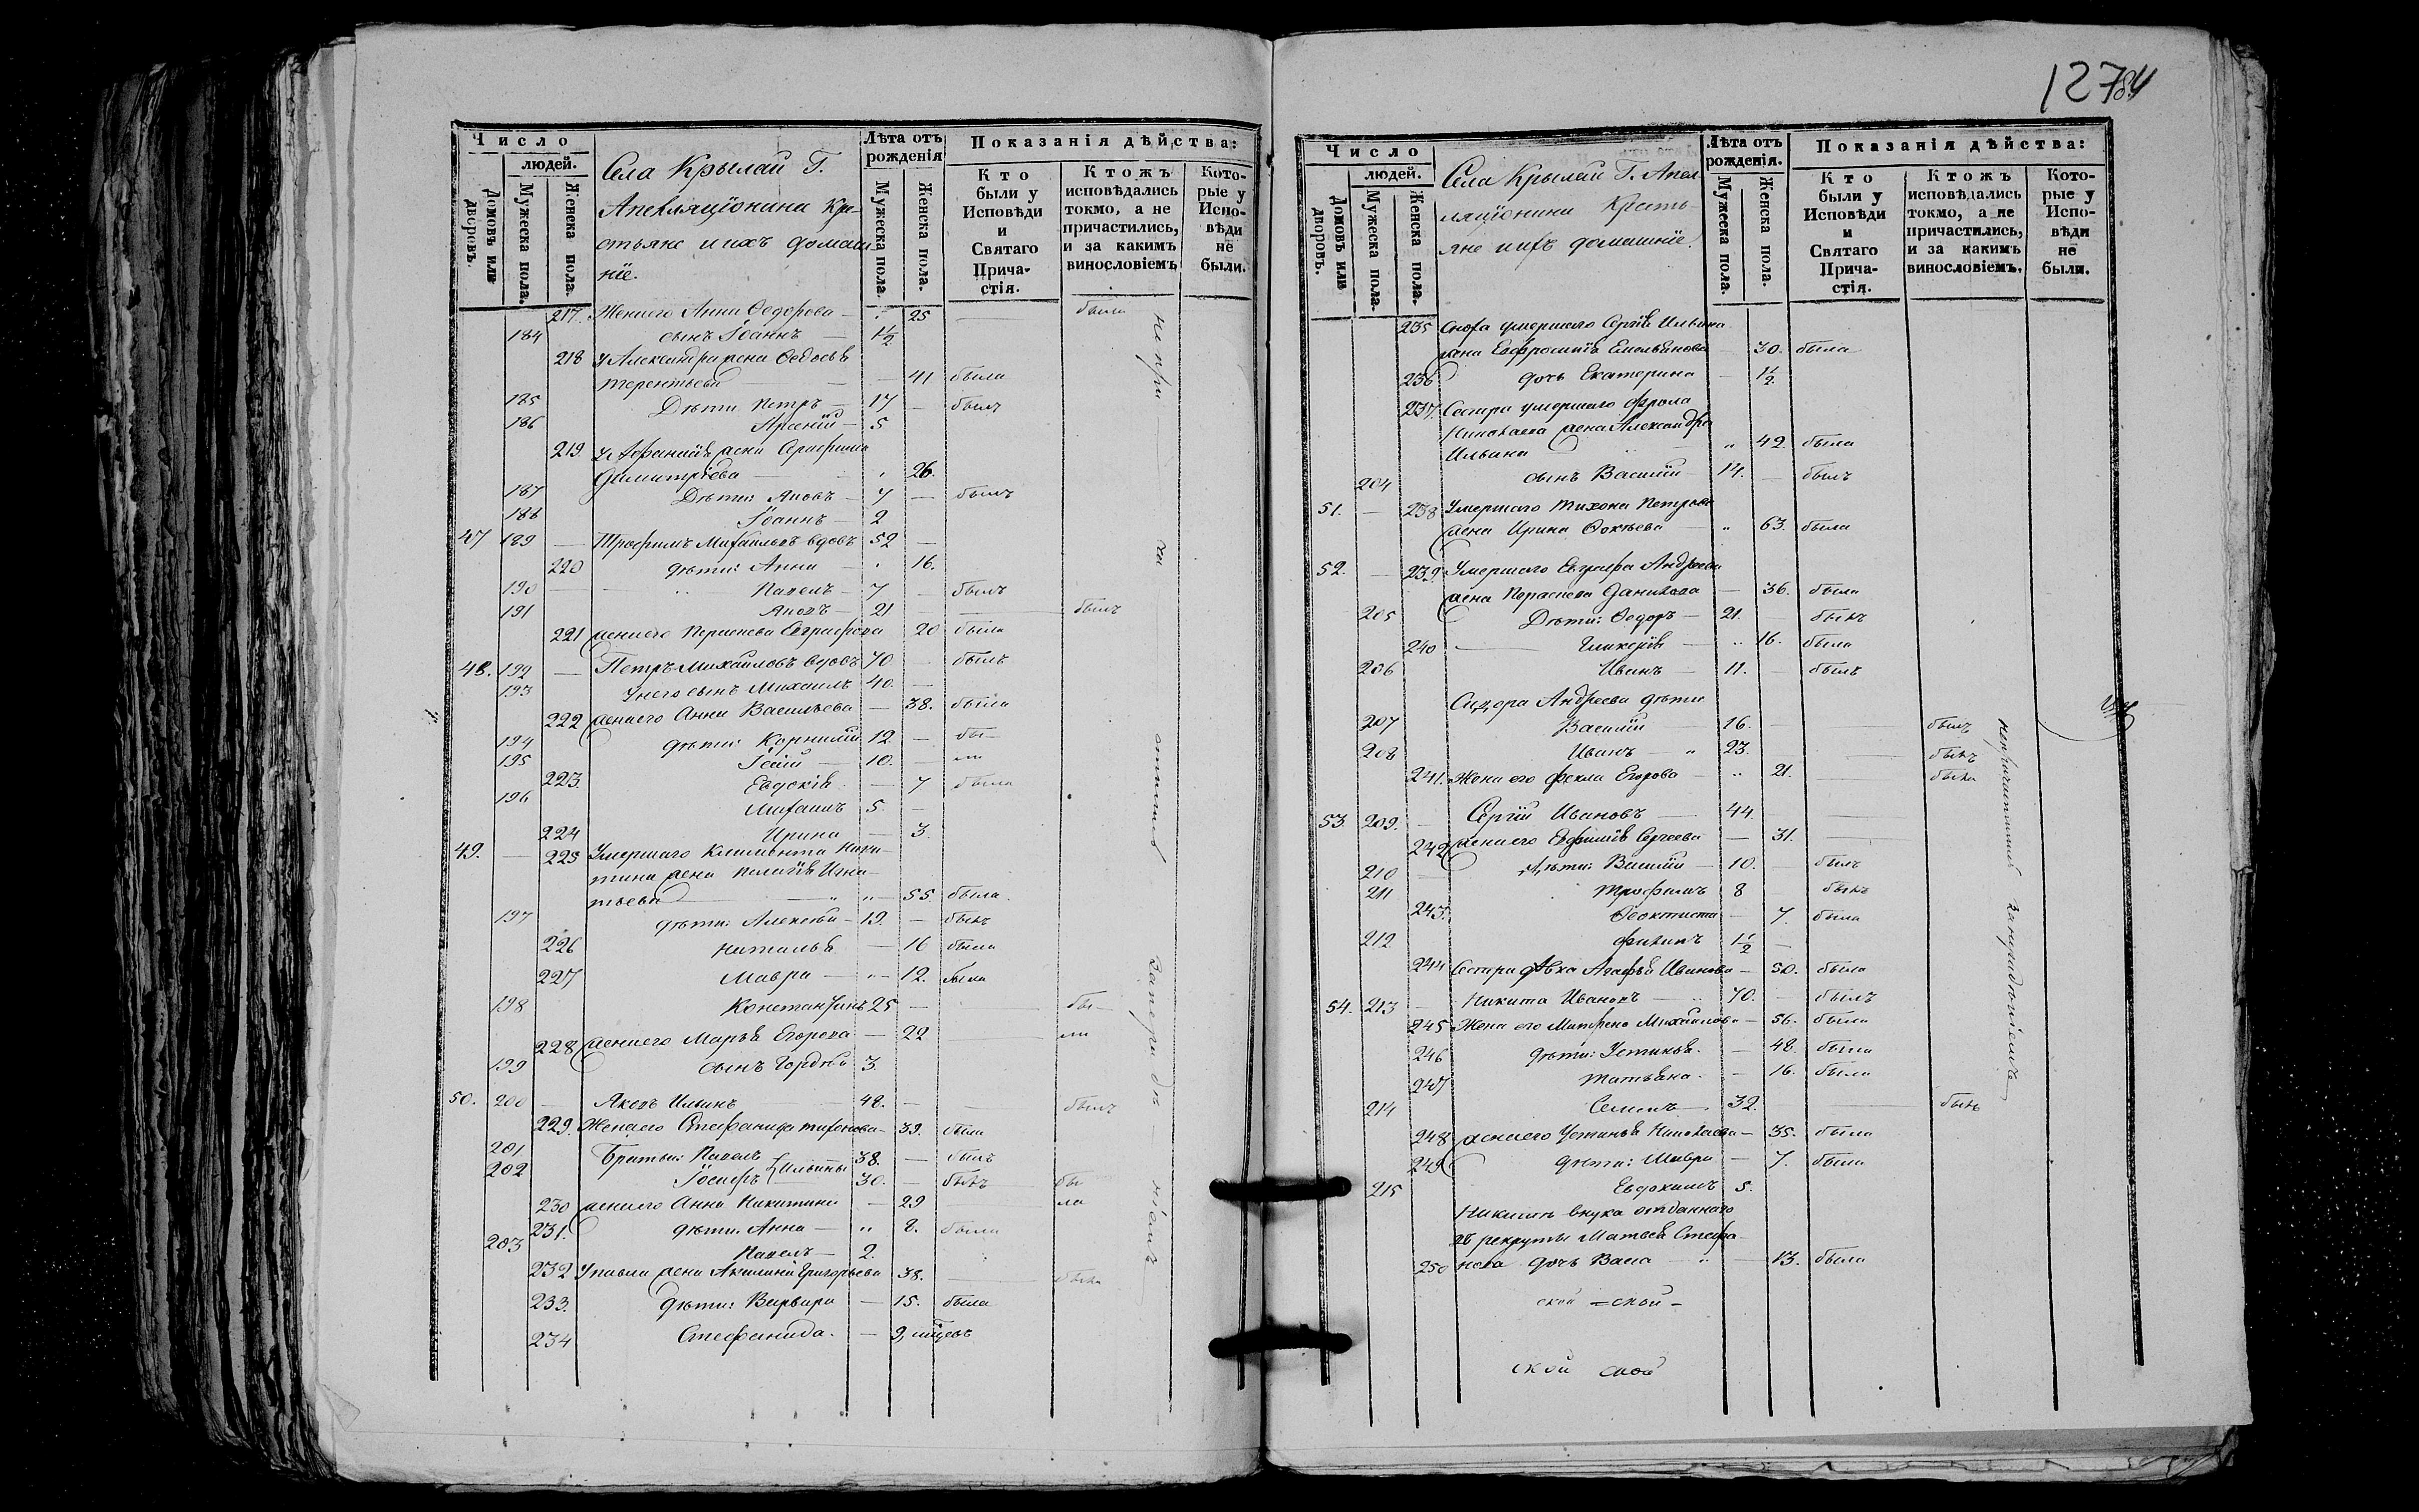 1278
Число
людей.
Домовъ или дворовъ.
Мужеска пола.
Женска пола.
Села Крылай Г.
Апелляціонина Кре-
стьяне и ихъ домаш-
ніе.
Лѣта отъ рожденія
Мужеска пола.
Женска пола.
Показанія дѣйства:
Кто были у Исповѣди и Святаго Прича-стія.
Ктожъ исповѣдались токмо, а не причастились, и за какимъ винословіемъ
Кото-рые у Испо-вѣди не были.
217. Жена его Анна Ѳедорова — 25 — была
184 сынъ Іоаннъ — 1½
218 У Александра жена Ѳедосья
Терентьева — 41 была
185 Дѣти Петръ — 17 — былъ
186 Арсеній — 5
219 жена Серафима
Димитріева — 26.
187 Дѣти: Яковъ — 7 — былъ
188 Іоаннъ — 2
47 189 — Трофимъ Михайловъ вдовъ 52 —
220 дѣти: Анна — 16.
190 — Павелъ — 7 — былъ
191 Яковъ — 21 — былъ
221 жена его Евграфова 20 была
48. 192 — Петръ Михайловъ вдовъ 70 — былъ
193 У него сынъ Михаилъ 40. —
222 жена его Анна Васильева — 38. была
194 дѣти: Корнилій 12 — бы—
195 10. — ли
223. Евдокія — 7 была
196 Михаилъ 5. —
224 Ирина — 3.
49. — 225 Умершаго Климента Ники-
тина жена Пелагія Игна-
тьева — 55 была.
197 дѣти: Алексѣй — 19. — былъ
226 Наталья — 16 была
227 Мавра — 12. была
198 Константинъ 25 — бы—
228 жена его Марья Егорова — 22 — ли
199 сынъ Гордѣй 3.
50. 200 — Яковъ Ильинъ 48. — былъ
229. Жена его Стефанида Тихонова — 39. была
201 Братья: Павелъ 38. — былъ
202 Іосифъ } Ильины 30. — былъ бы
230 жена его Анна Никитина — 29 — ла
231. дѣти: Анна — 8. была
203 Павелъ — 2.
232 У Павла жена Акилина Григорьева 38. — была
233. дѣти: Варвара — 15. была
234 Стефанида. — 9, мѣсяцъ
Число
людей.
Домовъ или дворовъ.
Мужеска пола.
Женска пола.
Села Крылай Г. Апел-
ляціонина Кресть-
яне и ихъ домашніе.
Лѣта отъ рожденія.
Мужеска пола.
Женска пола.
Показанія дѣйства:
Кто были у Исповѣди и Святаго Прича-стія.
Ктожъ исповѣдались токмо, а не причастились, и за какимъ винословіемъ.
Кото-рые у Испо-вѣди не были.
235 Сноха умершаго Сергія Ильина
жена Евфросинія Емельянова — 30. была
236 дочь Екатерина — 1½.
237. Сестра умершаго Фрола
Николаева жена Александра
Ильина — 42. была
204 сынъ Василій — 14. — былъ
51. — 238 Умершаго Тихона Петрова
жена Ирина — 63. была
52. — 239. Умершаго Евграфа Андреева
жена Параскева Данилова — 36. была
205 Дѣти: Ѳедоръ — 21. — былъ
240 Гликерія — 16. была
206 Иванъ — 11. — былъ
Сидора Андреева дѣти
207 Василій — 16. — былъ
208 Иванъ — 23. — былъ
241. Жена его Фекла Егорова — 21. — была
53. 209. — Сергій Ивановъ — 44. —
242. жена его Евфимія Сергеева — 31.
210 — Дѣти: Василій — 10. — былъ
211 Трофимъ 8 былъ
243. Ѳеоктиста — 7. была
212 Филипъ 1½ —
244 Сестра дѣвка Агафья Иванова — 50. была
54. 213 — Никита Ивановъ — 70. — былъ
245 Жена его Матрена Михайлова — 56. была
246 дѣти: Устинья. — 48. была
247 Татьяна. — 16. была
214 Семенъ — 32. — былъ
248 жена его Устинья Николаева — 35. была
249 дѣти: Мавра — 7. была
215 Евдокимъ 5.
Никиты внука отданнаго
въ рекруты Матвея Стефа-
250 нова дочь Васса — 13. была
ской = ской —
ской ской